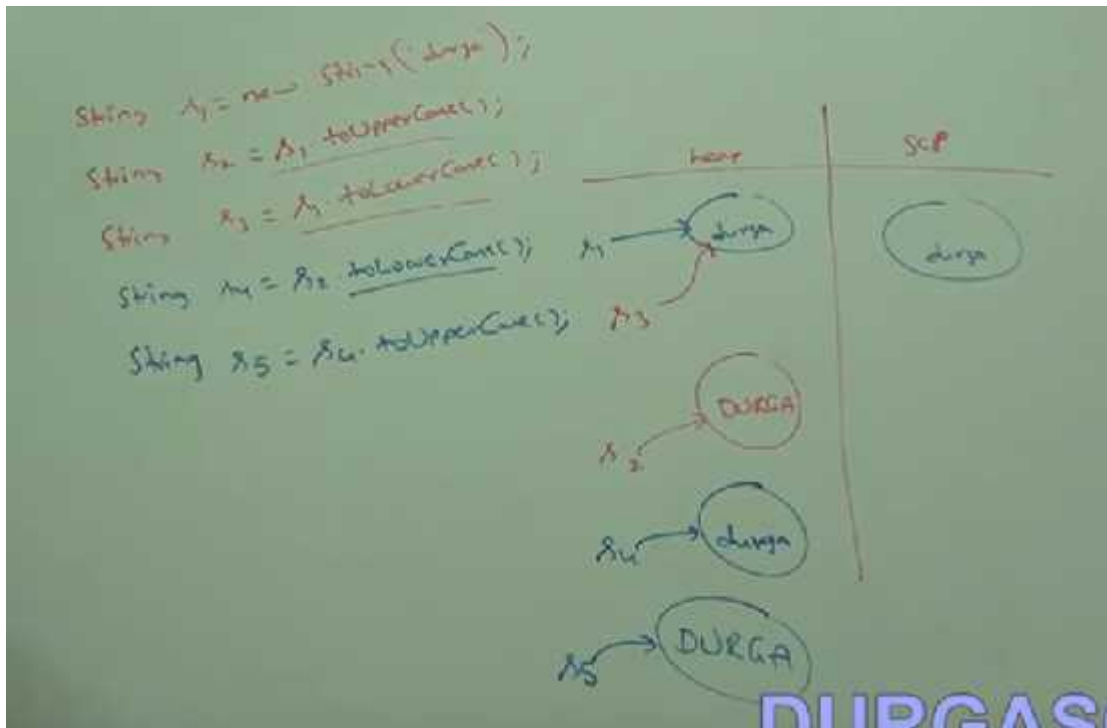 String s1 = new String("durga");
String s2 = s1.toUpperCase();
String s3 = s1.toLowerCase();
String s4 = s2.toLowerCase();
String s5 = s4.toUpperCase();
heap SCP
s1 durga durga
s3
DURGA
s2
s4 durga
s5 DURGA
DURGAS